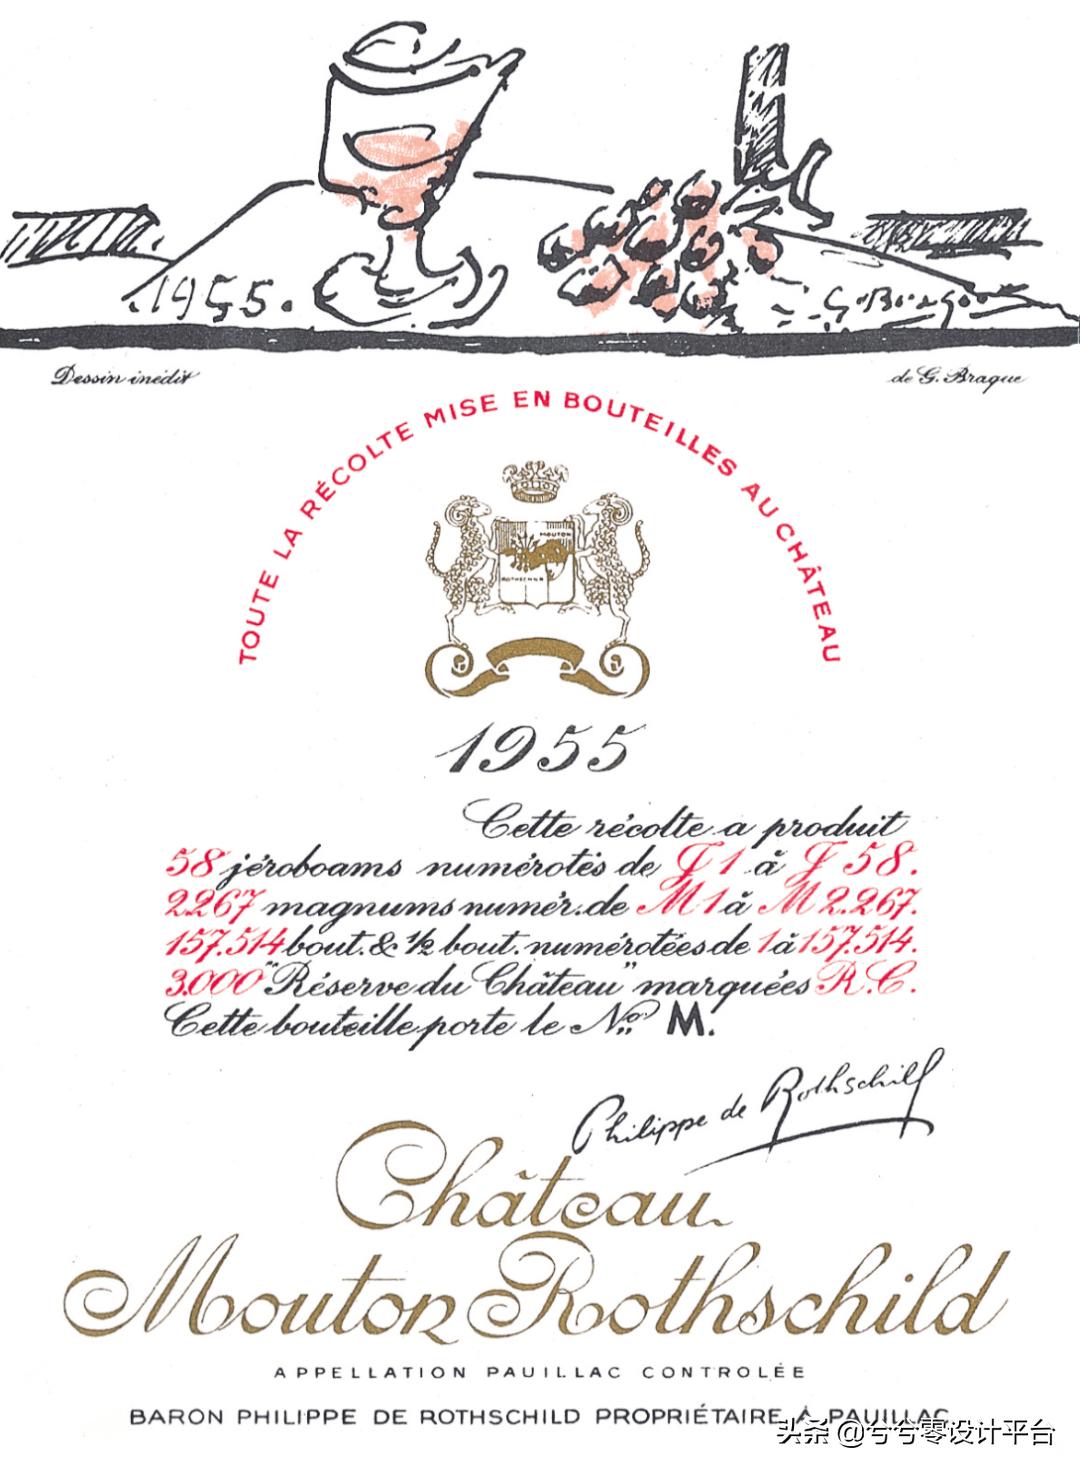 1955.
G. Braque
Dessin inédit
de G. Braque
TOUTE LA RÉCOLTE MISE EN BOUTEILLES AU CHÂTEAU
MOUTON
ROTHSCHILD
1955
Cette récolte a produit
58 jéroboams numérotés de J 1 à J 58.
2.267 magnums numér. de M 1 à M 2.267.
157.514 bout. & 1/2 bout. numérotées de 1 à 157.514.
3.000 "Réserve du Château" marquées R.C.
Cette bouteille porte le No M.
Philippe de Rothschild
Château
Mouton Rothschild
APPELLATION PAUILLAC CONTROLÉE
BARON PHILIPPE DE ROTHSCHILD PROPRIÉTAIRE A PAUILLAC
头条 @兮兮零设计平台